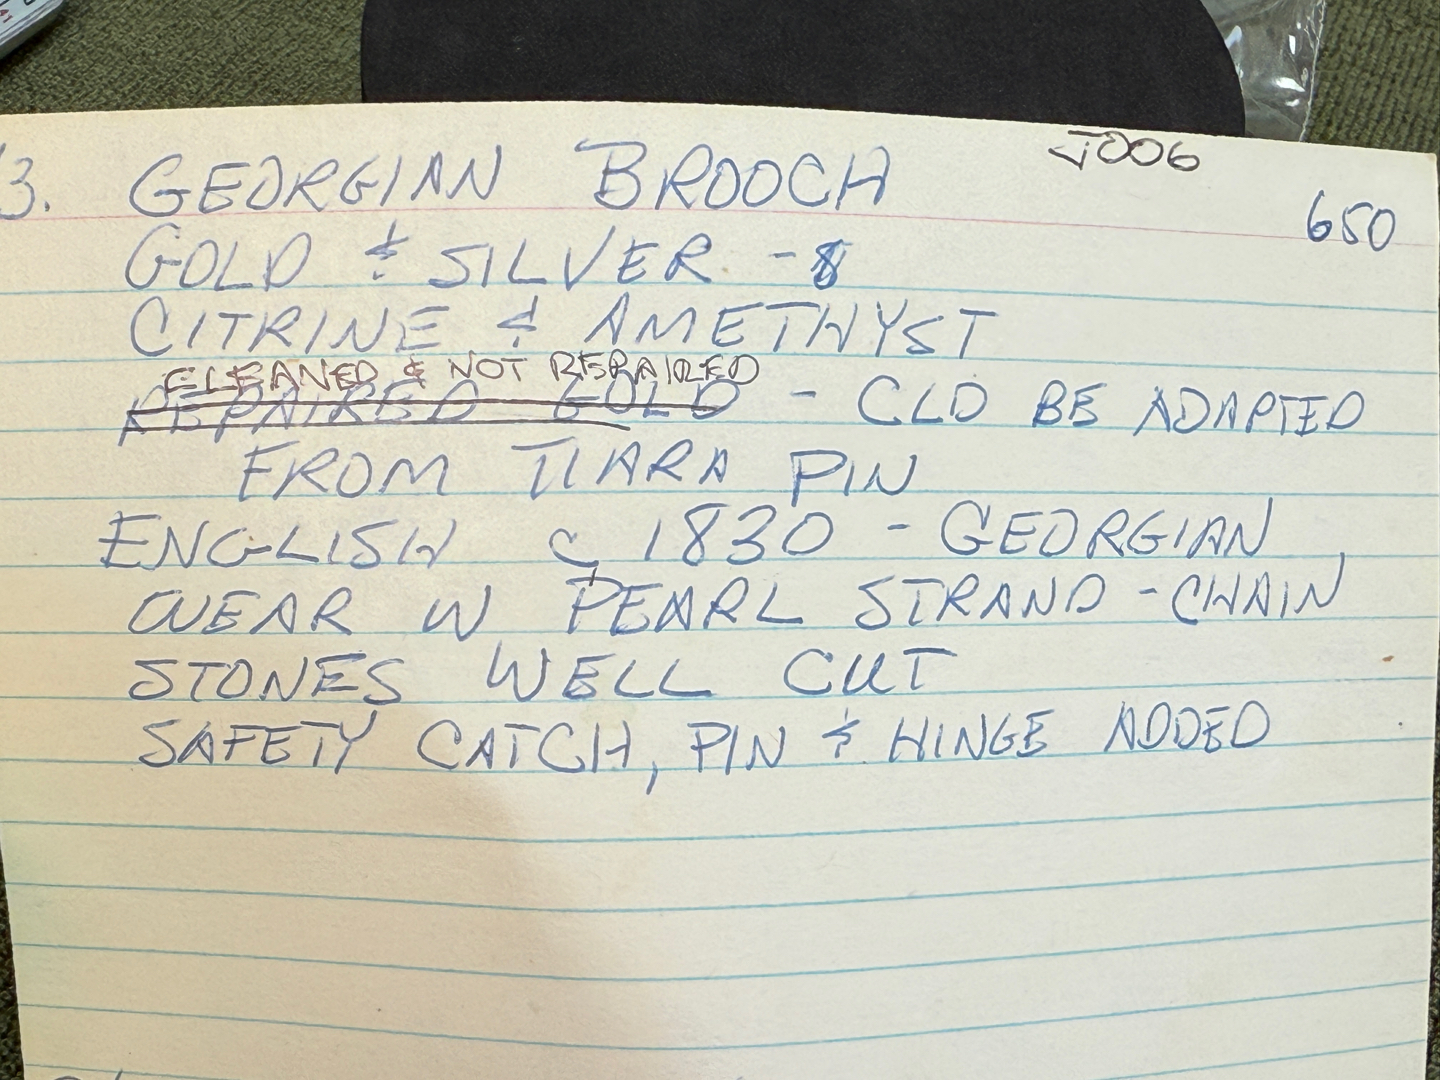 J006
3. GEORGIAN BROOCH
650
GOLD & SILVER -
CITRINE & AMETHYST
CLEANED & NOT REPAIRED
REPAIRED GOLD - CLD BE ADAPTED
FROM TIARA PIN
ENGLISH c 1830 - GEORGIAN
WEAR W PEARL STRAND - CHAIN
STONES WELL CUT
SAFETY CATCH, PIN & HINGE ADDED